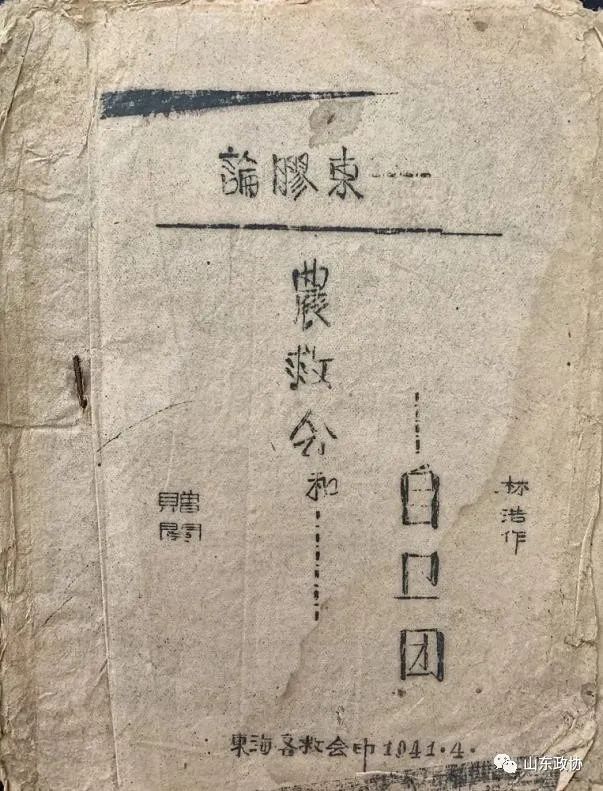 論膠東
農救会和
自卫团
林浩作
贈閱
東海各救会印 1941.4.
山东政协